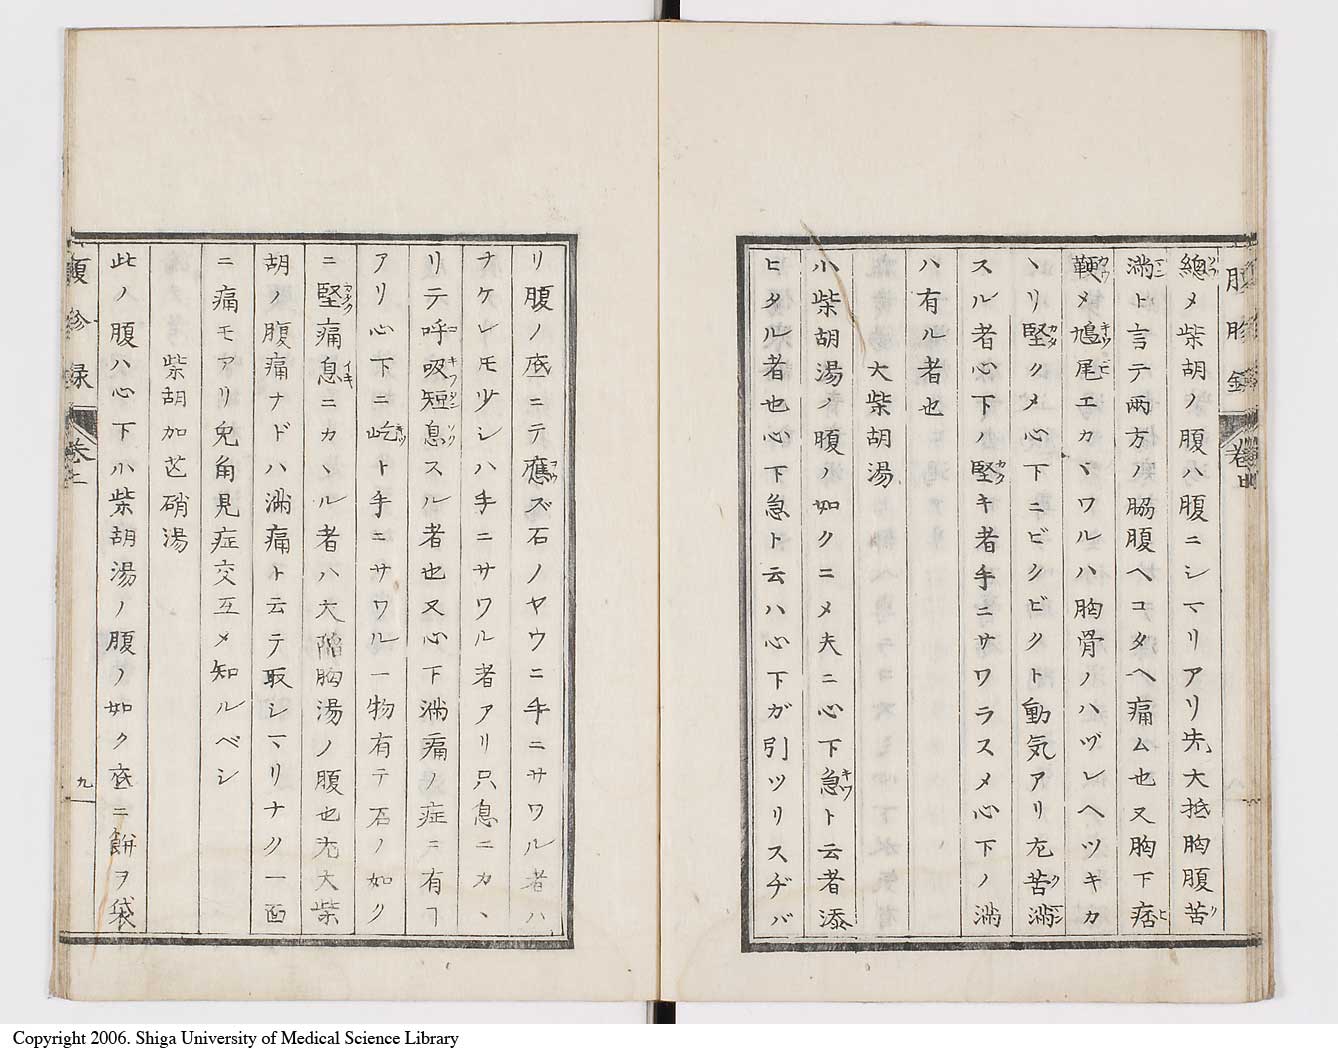 總メ柴胡ノ腹ハ腹ニシマリアリ先大抵胸腹苦
満ト言テ両方ノ脇腹ヘコタヘ痛ム也又胸下痞
鞕メ鳩尾エカヽワルハ胸骨ノハヅレヘツキカ
ヽリ堅クメ心下ニビクビクト動気アリ尤苦満
スル者心下ノ堅キ者手ニサワラスメ心下ノ満
ハ有ル者也
大柴胡湯
小柴胡湯ノ腹ノ如クニメ夫ニ心下急ト云者添
ヒタル者也心下急ト云ハ心下ガ引ツリスヂバ
リ腹ノ底ニテ應ズ石ノヤウニ手ニサワル者ハ
ナケレモ少シハ手ニサワル者アリ只息ニカヽ
リテ呼吸短息スル者也又心下満痛ノ症ニ有ヿ
アリ心下ニ屹ト手ニサワル一物有テ石ノ如ク
ニ堅痛息ニカヽル者ハ大陥胸湯ノ腹也尤大柴
胡ノ腹痛ナドハ満痛ト云テ取シマリナク一面
ニ痛モアリ兎角見症交互メ知ルベシ
柴胡加芒硝湯
此ノ腹ハ心下小柴胡湯ノ腹ノ如ク底ニ餅ヲ袋
腹診録 巻上
九
Copyright 2006. Shiga University of Medical Science Library